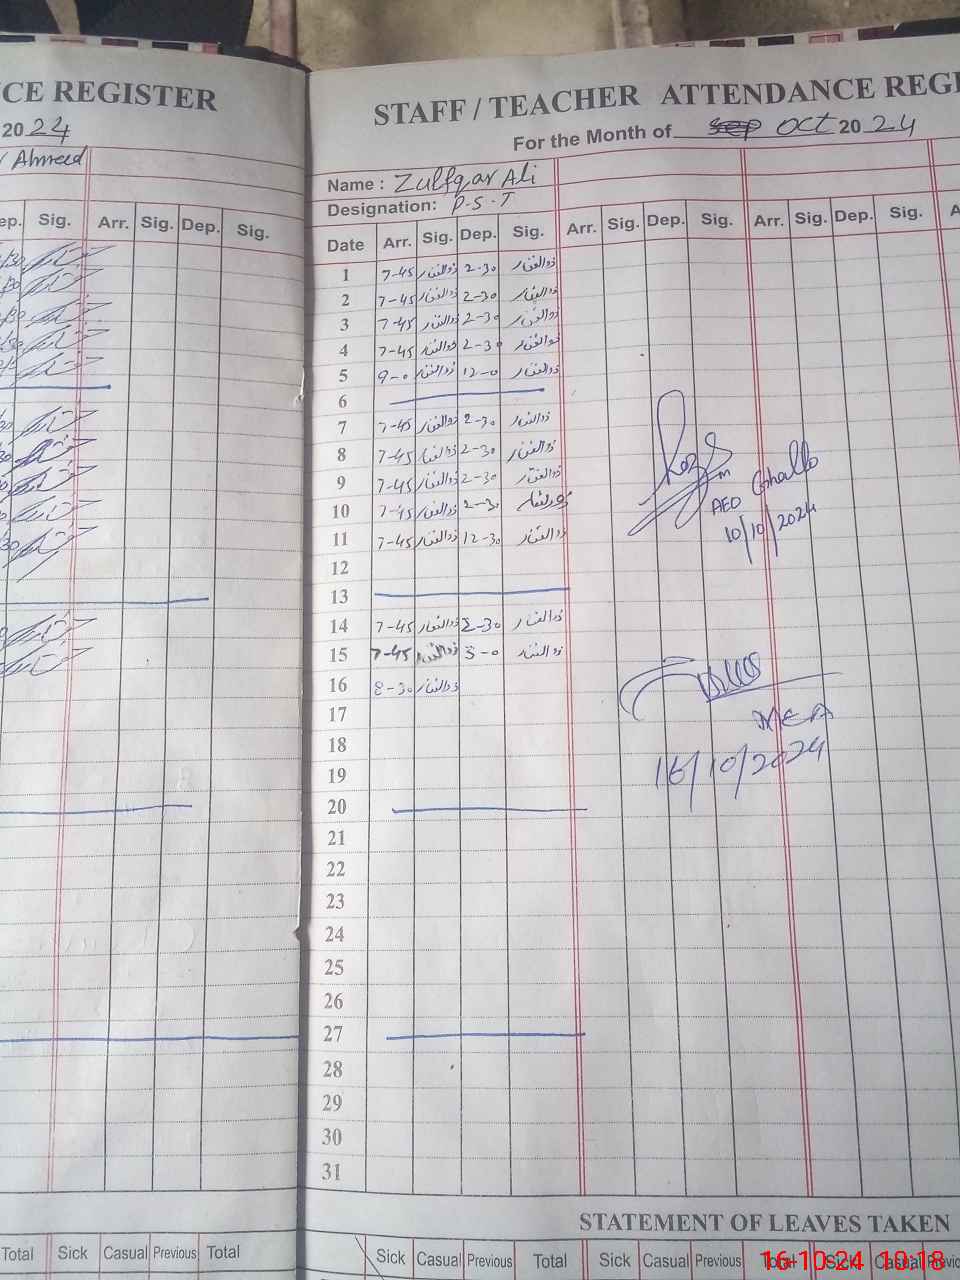 CE REGISTER
2024
Ahmed
ep. Sig. Arr. Sig. Dep. Sig.
Total Sick Casual Previous Total
STAFF / TEACHER ATTENDANCE REGI
For the Month of Oct 2024
Name : Zulfqar Ali
Designation: P.S.T
Date Arr. Sig. Dep. Sig. Arr. Sig. Dep. Sig. Arr. Sig. Dep. Sig. A
1 7-45 ذوالفقار 2-30 ذوالفقار
2 7-45 ذوالفقار 2-30 ذوالفقار
3 7-45 ذوالفقار 2-30 ذوالفقار
4 7-45 ذوالفقار 2-30 ذوالفقار
5 9-0 ذوالفقار 12-0 ذوالفقار
6
7 7-45 ذوالفقار 2-30 ذوالفقار
8 7-45 ذوالفقار 2-30 ذوالفقار
9 7-45 ذوالفقار 2-30 ذوالفقار
10 7-45 ذوالفقار 2-30
11 7-45 ذوالفقار 12-30 ذوالفقار
12
13
14 7-45 ذوالفقار 2-30 ذوالفقار
15 7-45 ذوالفقار 3-0 ذوالفقار
16 8-30 ذوالفقار
17
18
19
20
21
22
23
24
25
26
27
28
29
30
31
AEO
10/10/2024
MEA
16/10/2024
STATEMENT OF LEAVES TAKEN
Sick Casual Previous Total Sick Casual Previous Total Sick Casual Previo
16-10-24 10:18